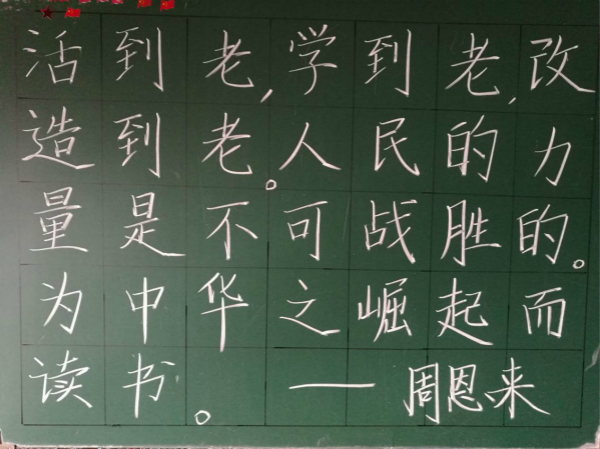 活到老,学到老,改
造到老。人民的力
量是不可战胜的。
为中华之崛起而
读书。——周恩来